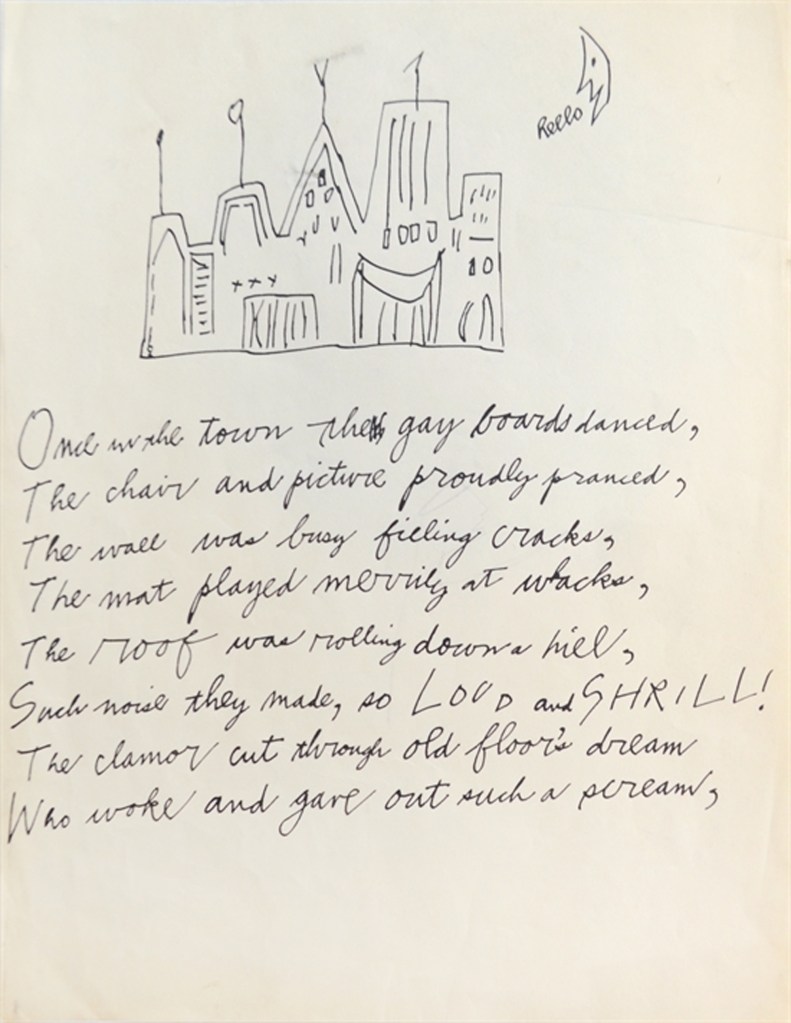 Rello
Once in the town the gay boards danced,
The chair and picture proudly pranced,
The wall was busy filling cracks,
The mat played merrily at whacks,
The roof was rolling down a hill,
Such noise they made, so LOUD and SHRILL!
The clamor cut through old floor's dream
Who woke and gave out such a scream,